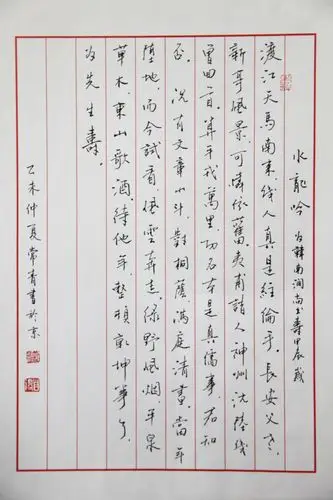 水龍吟 为韓南澗尚书壽甲辰歲
渡江天馬南來,幾人真是經綸手。長安父老,
新亭風景,可憐依舊。夷甫諸人,神州沉陸,幾
曾回首。算平戎萬里,功名本是,真儒事,君知
否。況有文章山斗,對桐蔭滿庭清晝。當年
墮地,而今試看,風雲奔走。綠野風烟,平泉
草木,東山歌酒。待他年,整頓乾坤事了,
为先生壽。
乙未仲夏常青書於京